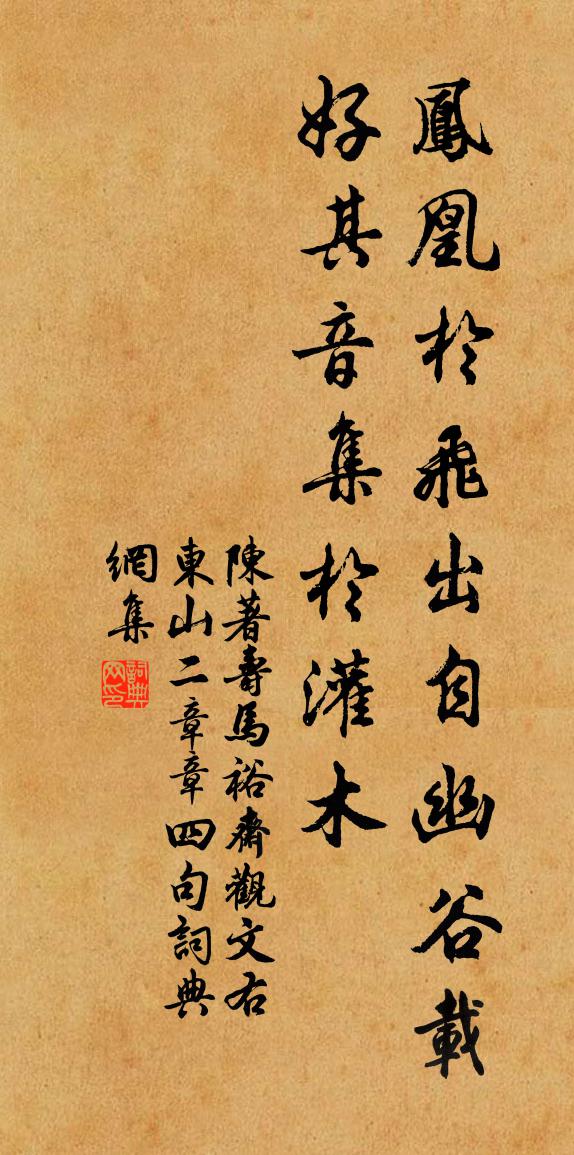 鳳凰於飛出自幽谷載
好其音集於灌木
陳著壽馬裕齋觀文右
東山二章章四句詞典
網集
詞典网印